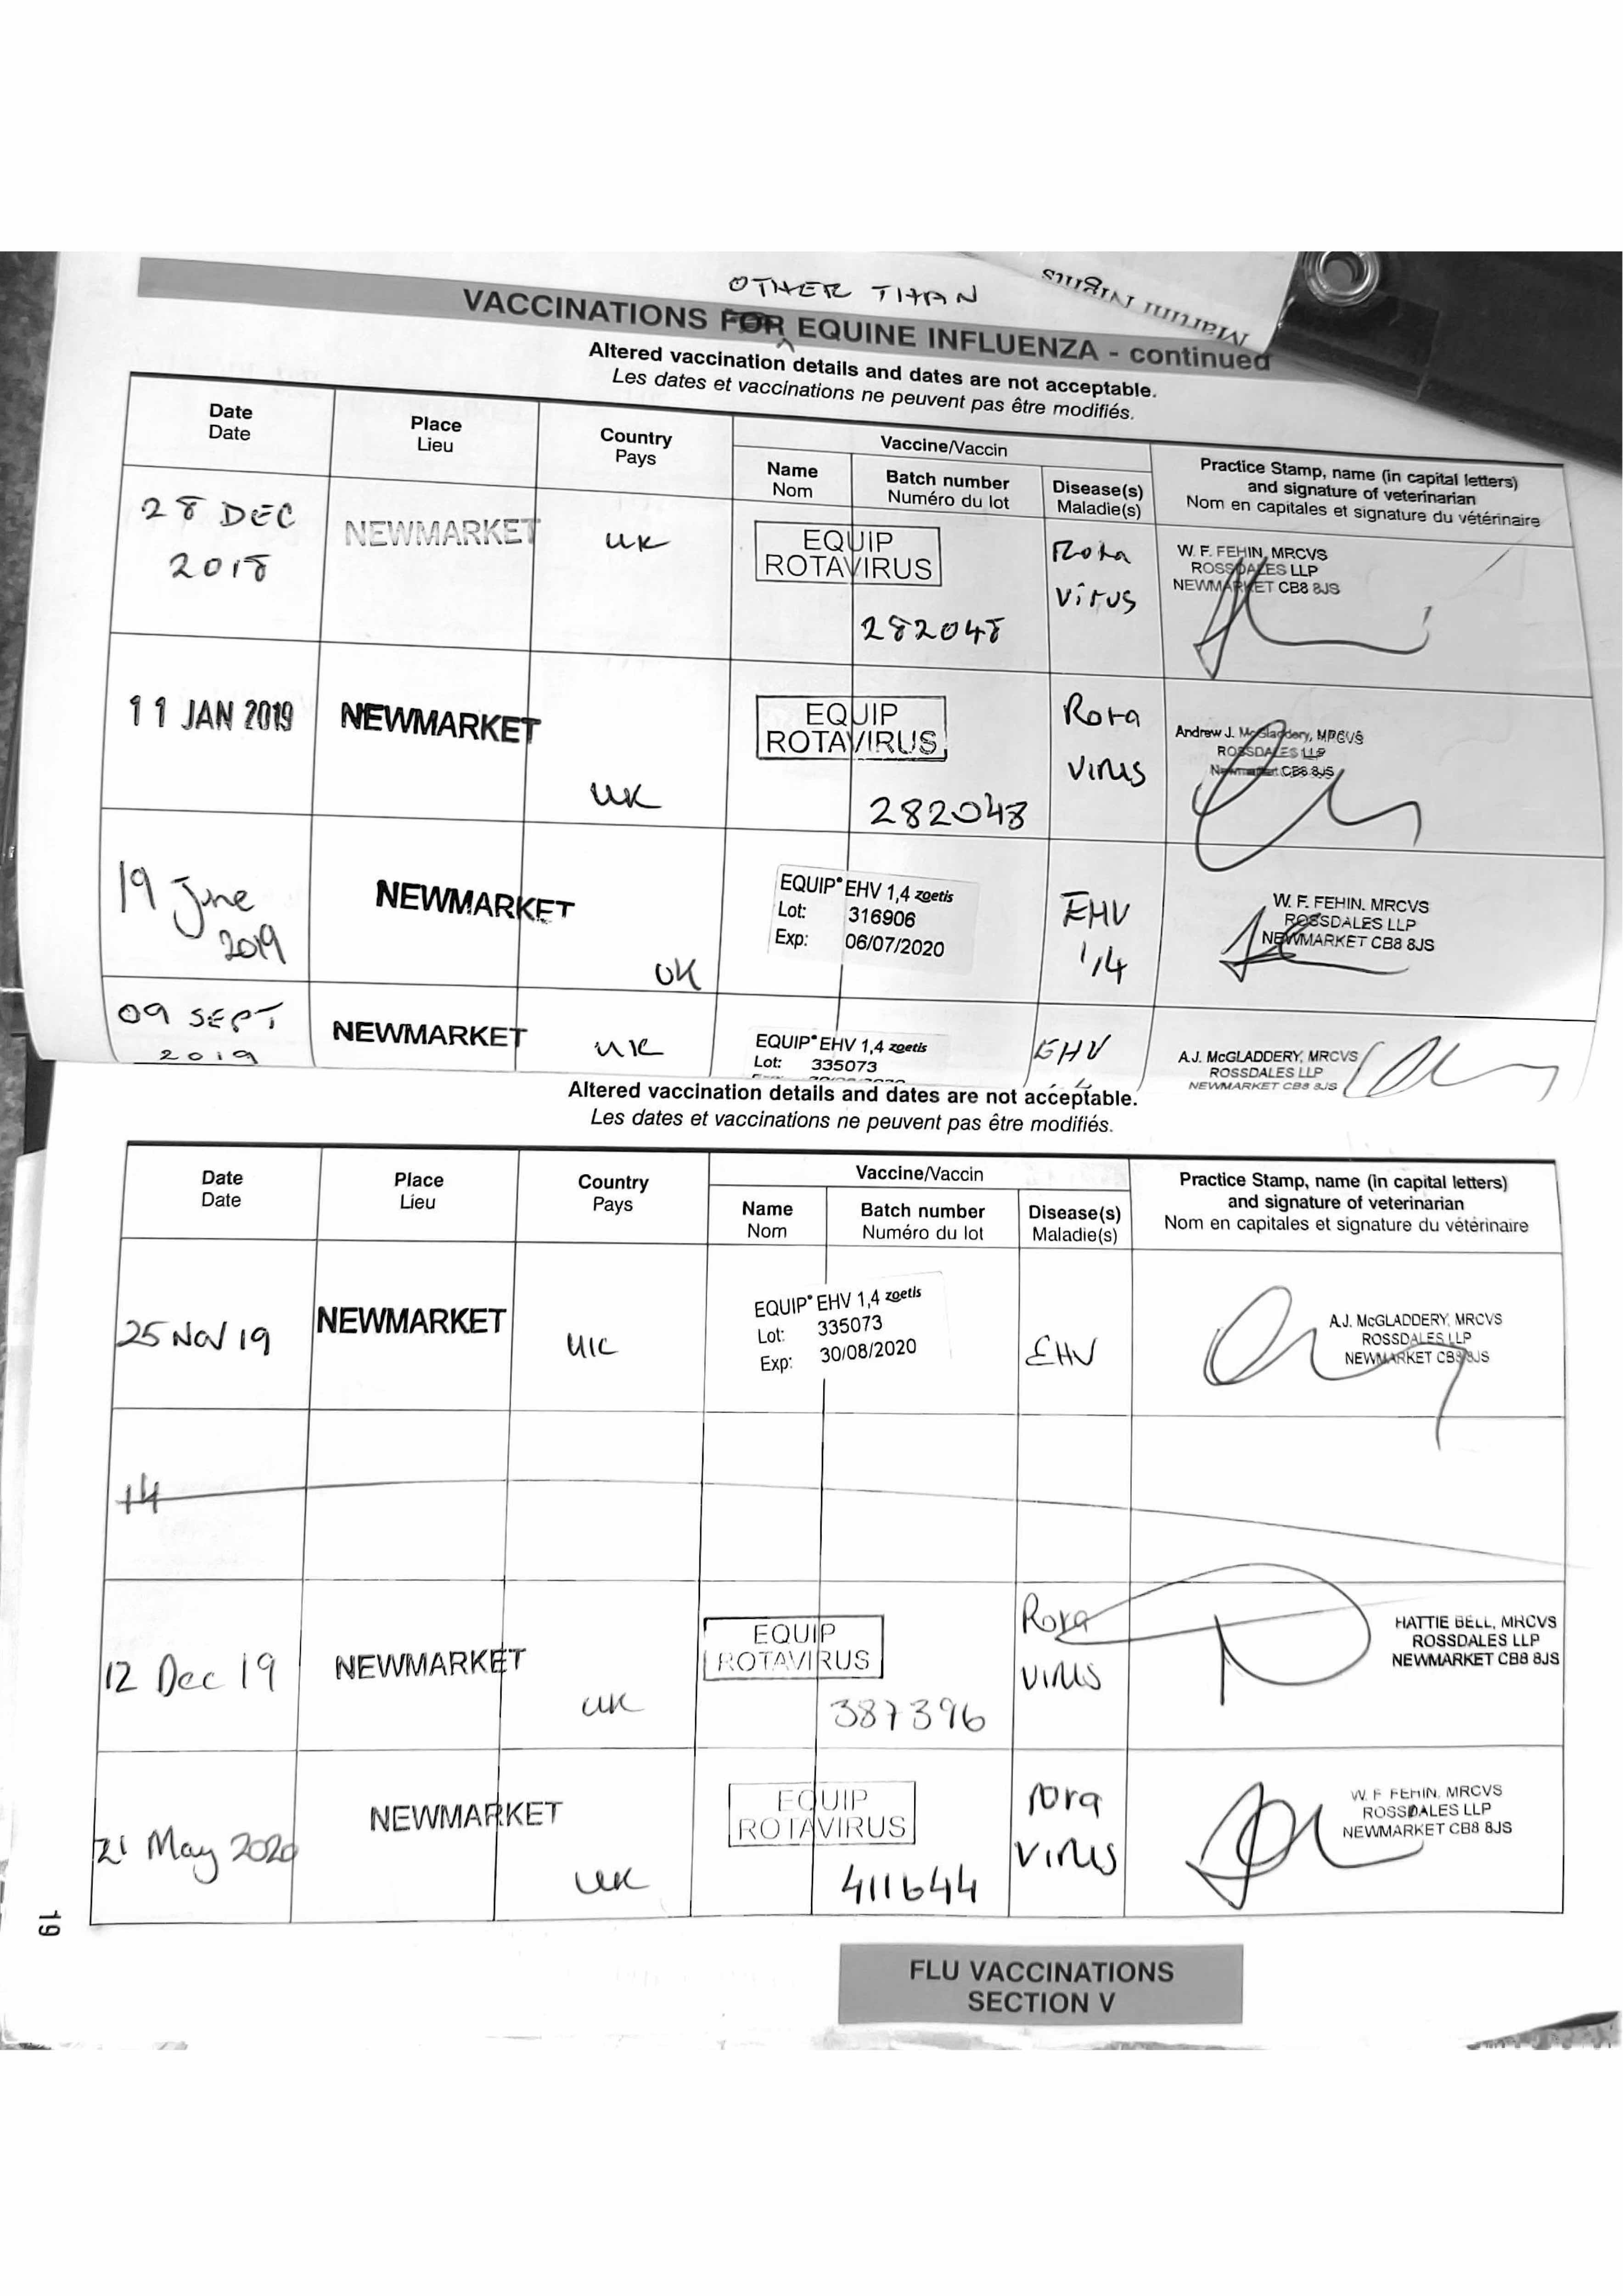 Martin Nigris
OTHER THAN
VACCINATIONS FOR EQUINE INFLUENZA - continued
Altered vaccination details and dates are not acceptable.
Les dates et vaccinations ne peuvent pas être modifiés.
Date Place Country Vaccine/Vaccin Practice Stamp, name (in capital letters)
Date Lieu Pays Name Batch number Disease(s) and signature of veterinarian
Nom Numéro du lot Maladie(s) Nom en capitales et signature du vétérinaire
28 DEC NEWMARKET UK EQUIP Rota W. F. FEHIN, MRCVS
2018 ROTAVIRUS Virus ROSSDALES LLP
282048 NEWMARKET CB8 8JS
11 JAN 2019 NEWMARKET EQUIP Rota Andrew J. McGladdery, MRCVS
ROTAVIRUS Virus ROSSDALES LLP
UK 282048 Newmarket CB8 8JS
19 June NEWMARKET EQUIP EHV 1,4 zoetis EHV W. F. FEHIN, MRCVS
2019 Lot: 316906 1/4 ROSSDALES LLP
UK Exp: 06/07/2020 NEWMARKET CB8 8JS
09 SEPT NEWMARKET UK EQUIP EHV 1,4 zoetis EHV A.J. McGLADDERY, MRCVS
2019 Lot: 335073 ROSSDALES LLP
NEWMARKET CB8 8JS
Altered vaccination details and dates are not acceptable.
Les dates et vaccinations ne peuvent pas être modifiés.
Date Place Country Vaccine/Vaccin Practice Stamp, name (in capital letters)
Date Lieu Pays Name Batch number Disease(s) and signature of veterinarian
Nom Numéro du lot Maladie(s) Nom en capitales et signature du vétérinaire
25 Nov 19 NEWMARKET UK EQUIP EHV 1,4 zoetis EHV A.J. McGLADDERY, MRCVS
Lot: 335073 ROSSDALES LLP
Exp: 30/08/2020 NEWMARKET CB8 8JS
14
12 Dec 19 NEWMARKET UK EQUIP Rota HATTIE BELL, MRCVS
ROTAVIRUS Virus ROSSDALES LLP
387396 NEWMARKET CB8 8JS
21 May 2020 NEWMARKET UK EQUIP rota W. F. FEHIN, MRCVS
ROTAVIRUS Virus ROSSDALES LLP
411644 NEWMARKET CB8 8JS
19
FLU VACCINATIONS
SECTION V